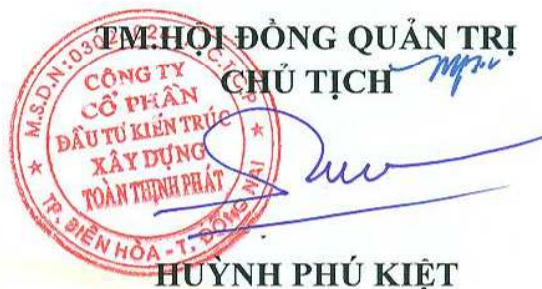 TM.HỘI ĐỒNG QUẢN TRỊ
CHỦ TỊCH
CÔNG TY
CỔ PHẦN
ĐẦU TƯ KIẾN TRÚC
XÂY DỰNG
TOÀN THỊNH PHÁT
TP. BIÊN HÒA - T. ĐỒNG NAI
HUỲNH PHÚ KIỆT